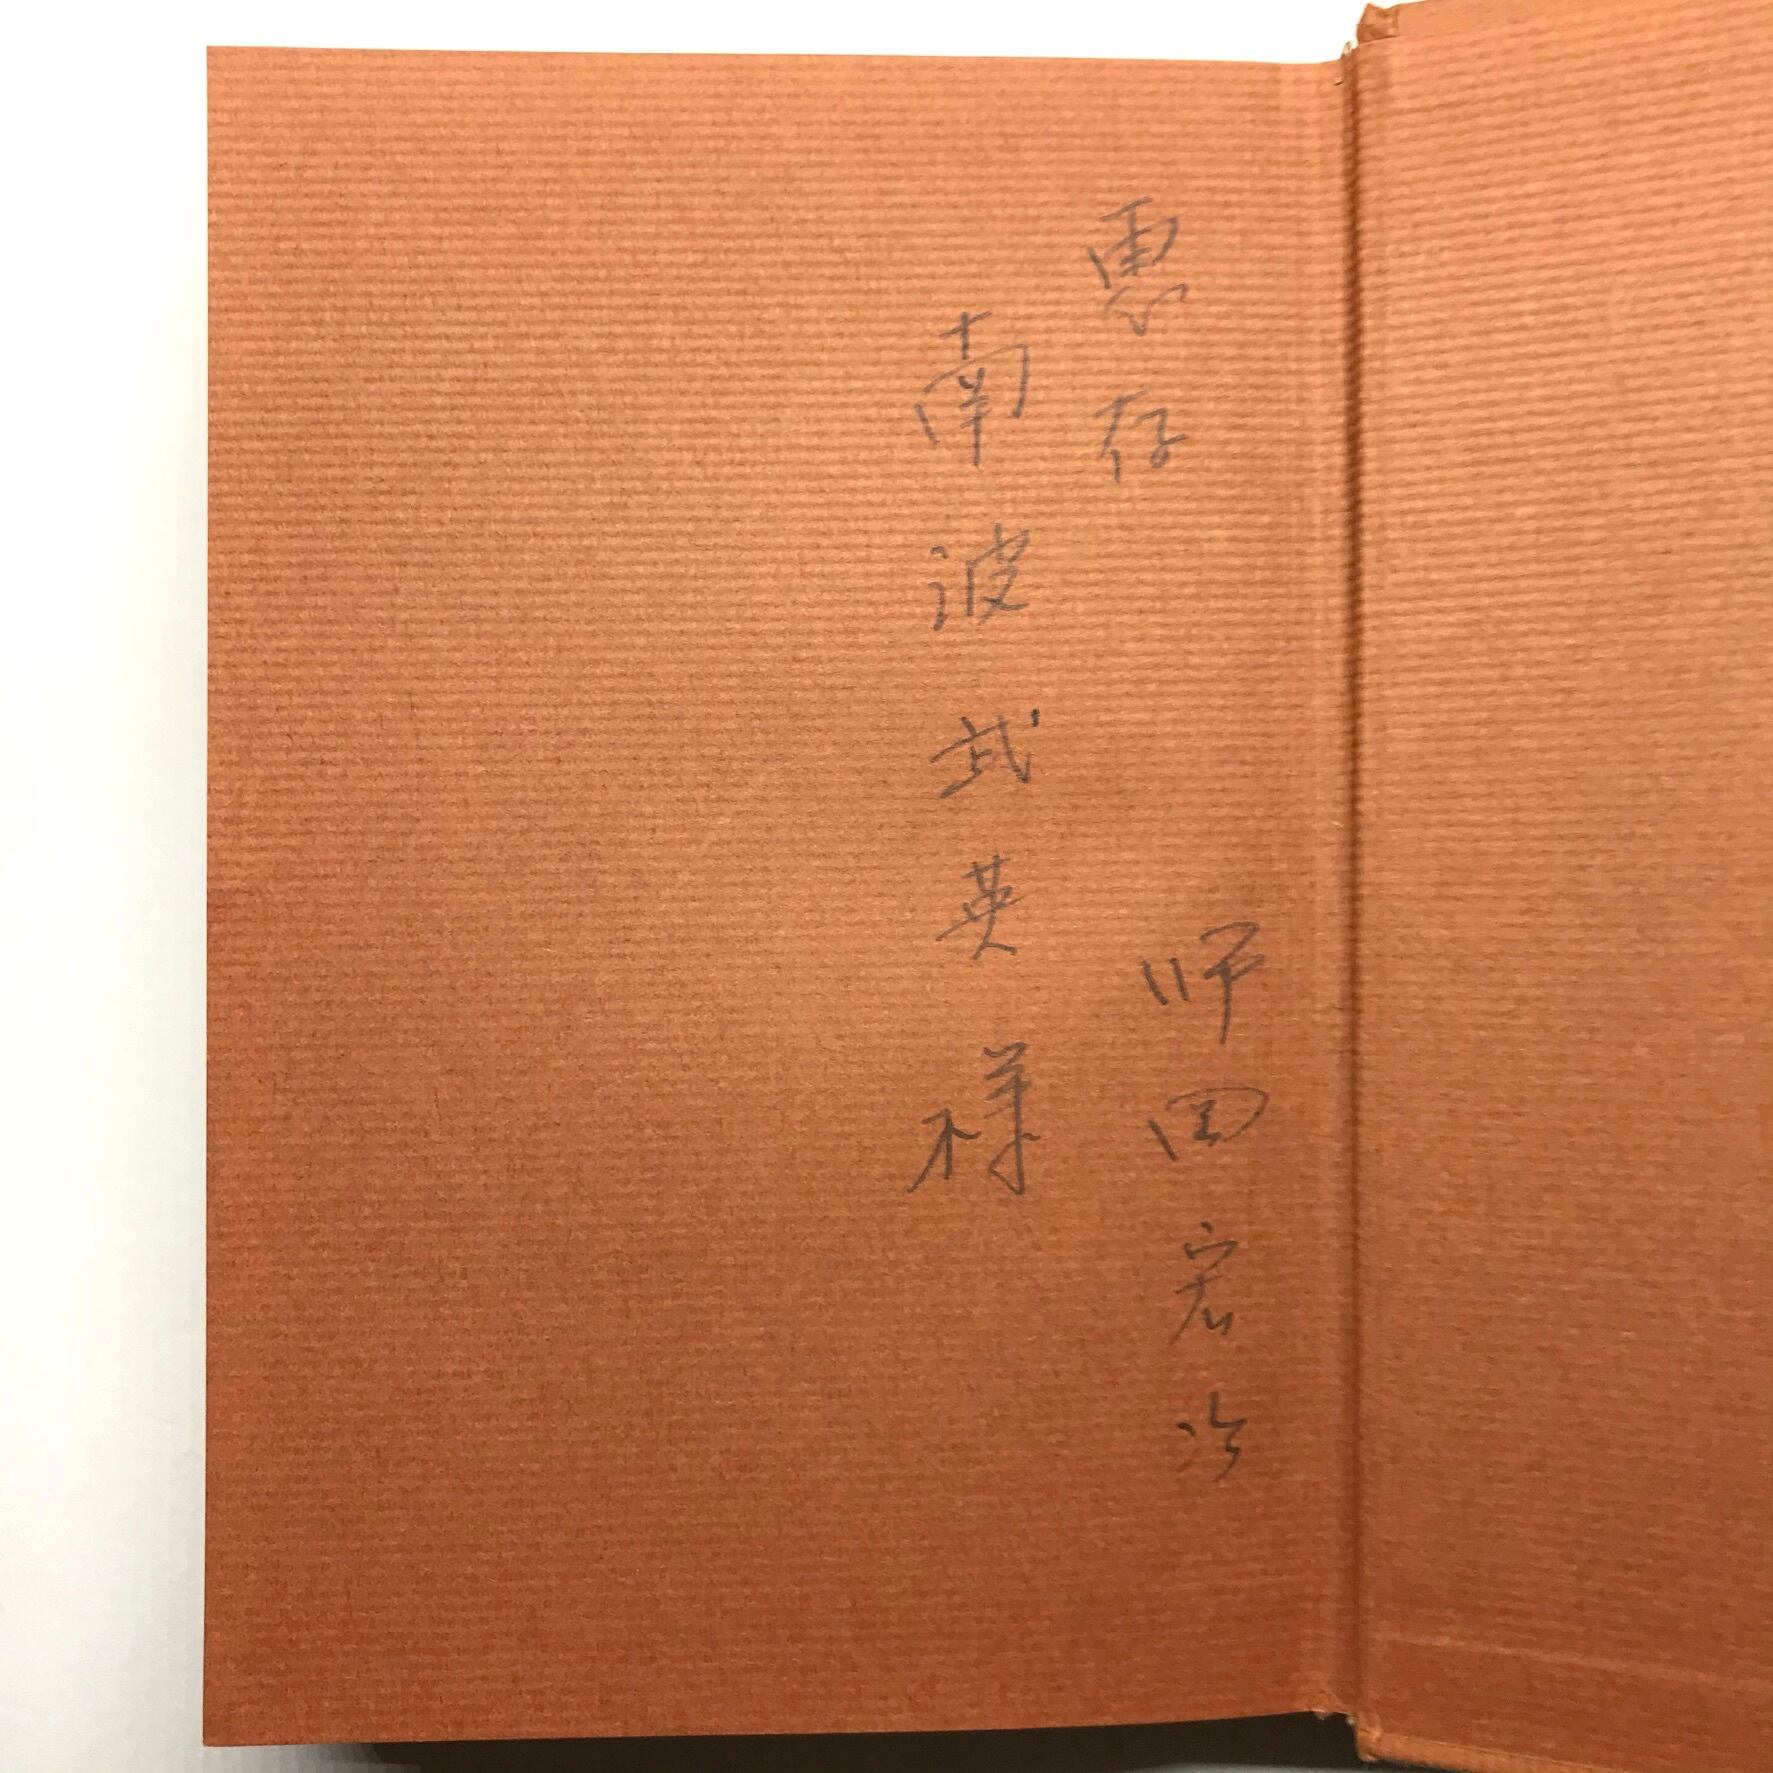 惠存
师田宏治
南波武英様